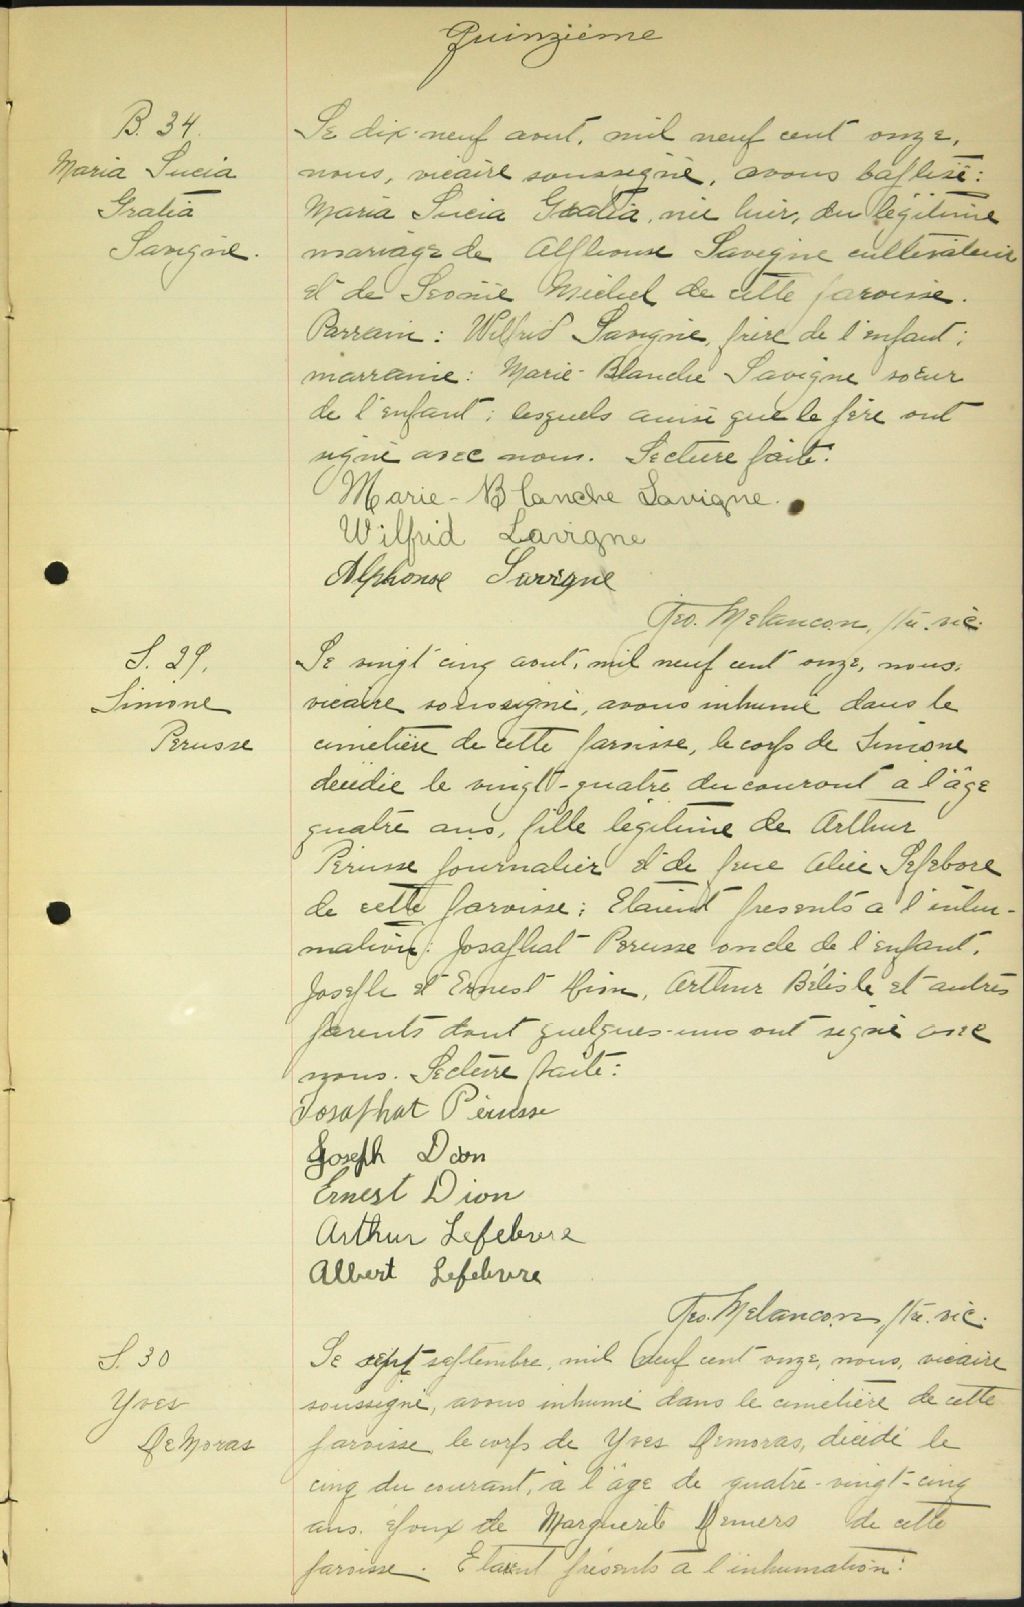 Quinzième
B. 34.
Maria Lucia
Gratia
Lavigne.
Le dix-neuf aout, mil neuf cent onze,
nous, vicaire soussigné, avons baptisé:
Maria Lucia Gratia, née hier, du légitime
mariage de Alphonse Lavigne cultivateur
et de Léonie Michel de cette paroisse.
Parrain: Wilfrid Lavigne, frère de l'enfant;
marraine: Marie-Blanche Lavigne soeur
de l'enfant; lesquels ainsi que le père ont
signé avec nous. Lecture faite.
Marie-Blanche Lavigne.
Wilfrid Lavigne
Alphonse Lavigne
Geo. Melancon, ptre. vic.
S. 29.
Simone
Perusse
Le vingt cinq aout, mil neuf cent onze, nous,
vicaire soussigné, avons inhumé dans le
cimetière de cette paroisse, le corps de Simone
décédée le vingt-quatre du courant a l'âge
quatre ans, fille légitime de Arthur
Perusse journalier et de feue Alice Lefebvre
de cette paroisse; Etaient presents a l'inhu-
mation: Josaphat Perusse oncle de l'enfant,
Joseph et Ernest Dion, Arthur Bélisle et autres
parents dont quelques-uns ont signé avec
nous. Lecture faite:
Josaphat Pérusse
Joseph Dion
Ernest Dion
Arthur Lefebvre
Albert Lefebvre
Geo. Melancon, ptre. vic.
S. 30
Yves
DeMoras
Le sept septembre, mil neuf cent onze, nous, vicaire
soussigné, avons inhumé dans le cimetière de cette
paroisse le corps de Yves Demoras, décédé le
cinq du courant, à l'âge de quatre-vingt-cinq
ans. époux de Marguerite Demers de cette
paroisse. Etaient présents a l'inhumation: